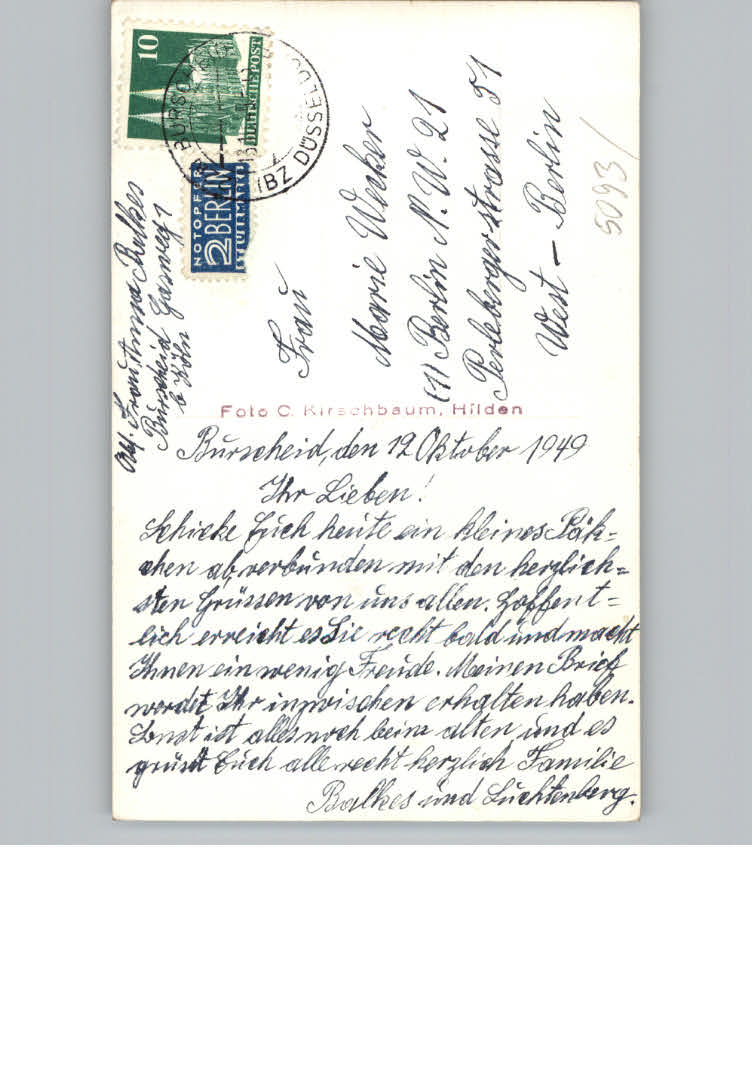 10
DEUTSCHE POST
BURSCHEID
(BZ DÜSSELDO
NOTOPFER
2 BERLIN
STEUERMARKE
Frau
Marie Wecker
(1) Berlin N.W. 21
Perlebergerstrasse 51
West - Berlin
5093/
Frau Anna Balkes
Burscheid
b Köln
Foto C. Kirschbaum, Hilden
Burscheid, den 12 Oktober 1949
Ihr Lieben!
Schicke Euch heute ein kleines Päk=
chen ab, verbunden mit den herzlich=
sten Grüssen von uns allen. Hoffent=
lich erreicht es Sie recht bald und macht
Ihnen ein wenig Freude. Meinen Brief
werdet Ihr inzwischen erhalten haben.
Sonst ist alles noch beim alten und es
grüsst Euch alle recht herzlich Familie
Balkes und Luchtenberg.